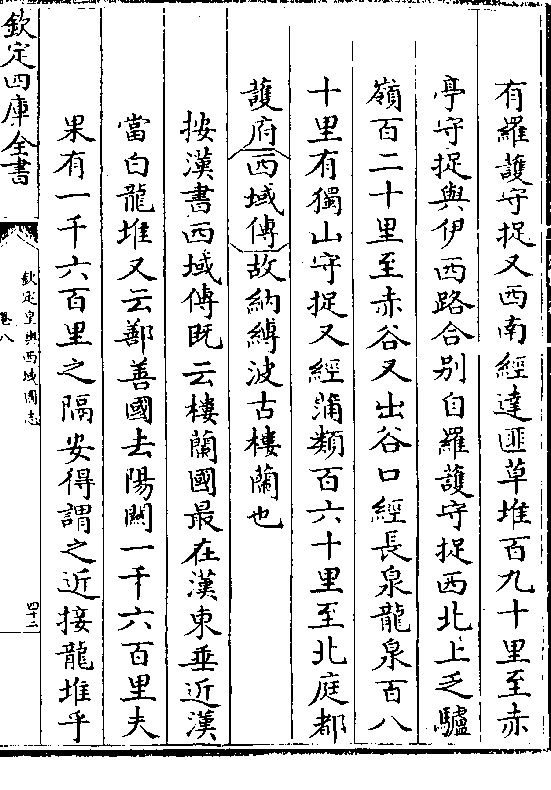 有羅護守捉又西南經達匪草堆百九十里至赤
亭守捉與伊西路合别自羅護守捉西北上乏驢
嶺百二十里至赤谷又出谷口經長泉龍泉百八
十里有獨山守捉又經蒲類百六十里至北庭都
護府西域傳故納縛波古樓蘭也
按漢書西域傳既云樓蘭國最在漢東垂近漢
當白龍堆又云鄯善國去陽關一千六百里夫
果有一千六百里之隔安得謂之近接龍堆乎
欽定四庫全書
欽定皇輿西域圖志
卷八
四十二